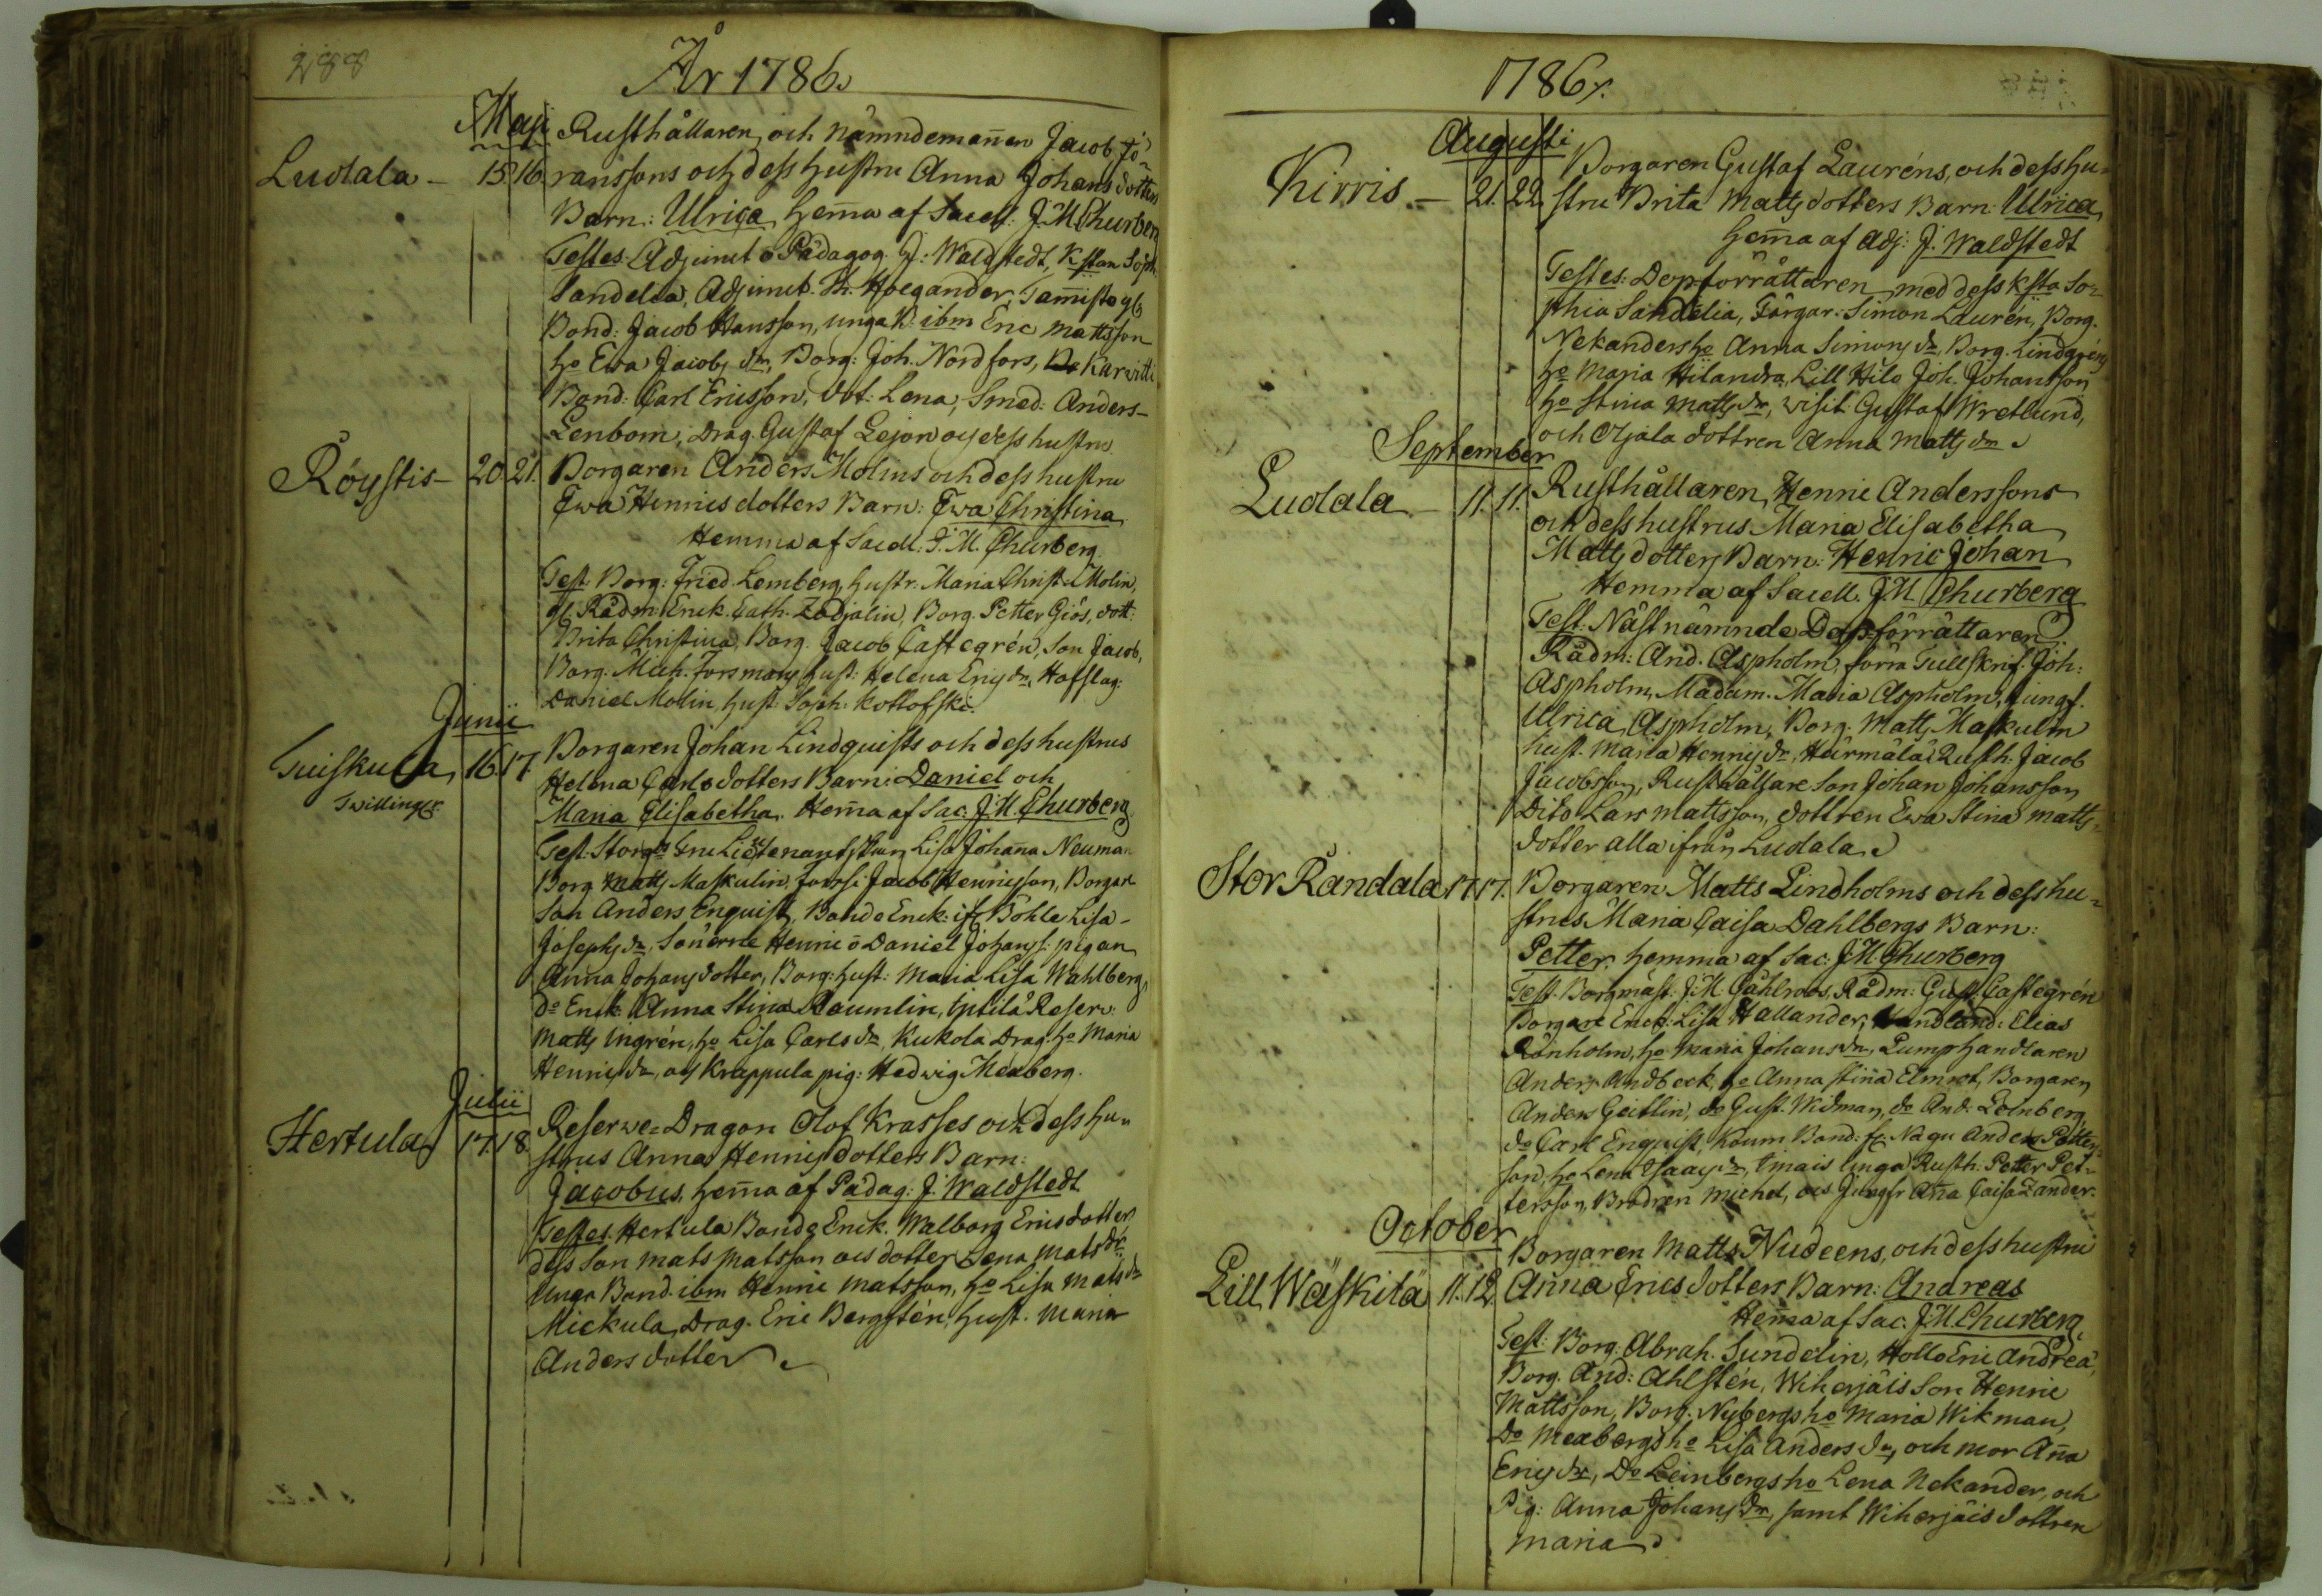 288
År 1786.
Maji
Rusthållaren och nämndemañen Jacob Jö-
Ludala - 15. 16. ranssons och dess hustru Anna Johans dotters
Barn: Ulrica, hem̄a af Sacell. J. M. Churberg
Testes. Adjunct o Pädagog. J: Waldstedt, K stan Soph.
Sandelia, Adjunct. Th. Hoegander,
Bond: Jacob Hansson, unga B. ibm Eric Mattsson
ho Ewa Jacobs dr, Borg: Joh. Nordfors, Karwitti
Bond: Carl Ericsson, dot: Lena, Smed: Anders-
Lenbom, Drag. Gustaf Lejon och dess hustru
Röystis - 20. 21. Borgaren Anders Molins och dess hustru
Ewa Henricsdotters Barn: Ewa Christina
Hemma af Sacell: J. M. Churberg.
Test. Borg: Fried. Lemberg, hustr. Maria Christ. Molin,
Rådm. Enck. Cath. Zadjalin, Borg. Petter Giös, dott:
Brita Christina, Borg. Jacob Castegrén, Son Jacob,
Borg. Mich. Forsmans hust: Helena Erics dr, Hofslag:
Daniel Molin, hust. Soph. Kottofski.
Junii
Tuiskula, 16. 17. Borgaren Johan Lindquists och dess hustrus
Twillingr. Helena Carlsdotters Barn: Daniel och
Maria Elisabetha. Hem̄a af Sac. J. M. Churberg
Test. Lieutenants Lisa Johana Neuman
Borg Matts Maskulin, Jacob Henricsson, Borgare
Son Anders Enquist, Bonde Enck: ifr. Böhle Lisa-
Josephs dr, Sönerne Henric o Daniel Johans: pigan
Anna Johans dotter, Borg: hust: Maria Lisa Wahlberg,
do Enck: Anna Stina Raumlin, Reserv:
Matts Ingrén, ho Lisa Carls dr, Kukola Drag. ho Maria
Henrics dr, och Krappula pig: Hedwig Mexberg.
Julii
Hertula 17. 18. Reserwe-Dragon Olof Krasses och dess hu-
strus Anna Henrics dotters Barn:
Jacobus, hem̄a af Pädag: J. Waldstedt
Testes. Hertula Bonde Enck. Walborg Erics dotter,
dess Son Mats Matsson och dotter Lena Mats dr
Unga Bond. ibm Henric Matsson, ho Lisa Mats dr
Mickula Drag. Eric Bergstén, hust. Maria
Anders dotter.
1786.
Augusti
Kirris. - 21. 22. Borgaren Gustaf Lauréns, och dess hu-
stru Brita Matts dotters Barn: Ulrica,
hem̄a af Adj: J. Waldstedt
Testes: Dopförrättaren med dess Ksta So-
phia Sandelia, Färgar: Simon Laurén, Borg.
Nekanders ho Anna Simons dr, Borg. Lindgréns
ho Maria Hilandra, Lill Hilo Joh. Johansson
ho Stina Matts dr, Visit: Gustaf Wretlund,
och Ojala dottren Anna Matts dr
September
Ludala - 11. 11. Rusthållaren, Henric Anderssons
och dess hustrus Maria Elisabetha
Matts dotters Barn: Henric Johan
Hemma af Sacell. J. M. Churberg
Test: Nästnämnde Dopförrättaren
Rådm: And. Aspholm, förra Tullskrif. Joh:
Aspholm, Madam. Maria Aspholm, Jungf.
Ulrica Aspholm, Borg. Matts Maskulin
hust. Maria Henrics dr, Heirmälä Rusth: Jacob
Jacobsson, Rusthållare Son Johan Johansson,
Dito Lars Mattsson, dottren Ewa Stina Matts-
dotter alla ifrån Ludala
Stor Randala 17. 17. Borgaren Matts Lindholms och dess hu-
strus Maria Caisa Dahlbergs Barn:
Petter. hemma af Sac: J. M. Churberg
Test. Borgmäst: J. M. Pählroos, Rådm: Gust. Castegrén
Borgare Enck: Lisa Hallander, Handland: Elias
Rönholm, ho Maria Johans dr, Lumphandlaren
Anders Andbeck, ho Anna Stina Elmrot, Borgaren
Anders Geitlin, do Gust. Widman, do And. Leinberg
do Carl Enquist, Bond: fr: Nagu Anders Petters
son, ho Lena Isaacs dr, Unga Rusth. Petter Pet-
tersson, Brodren Michel, och Jungfr Aña Caisa Zander.
October
Borgaren Matts Nudeens, och dess hustru
Lill Wäskilä 11. 12. Anna Erics dotters Barn: Andreas
Hem̄a af Sac. J. M. Churberg.
Test: Borg. Abrah. Sundelin, Hollo Eric Andreæ,
Borg. And: Ahlstén, Wiherjäis Son Henric
Mattsson, Borg: Nybergs ho Maria Wikman,
Do Mexbergs ho Lisa Anders dr, och mor Aña
Erics dr, Do Leinbergs ho Lena Nekander, och
Pig: Anna Johans dr, samt Wiherjäis dottren
Maria